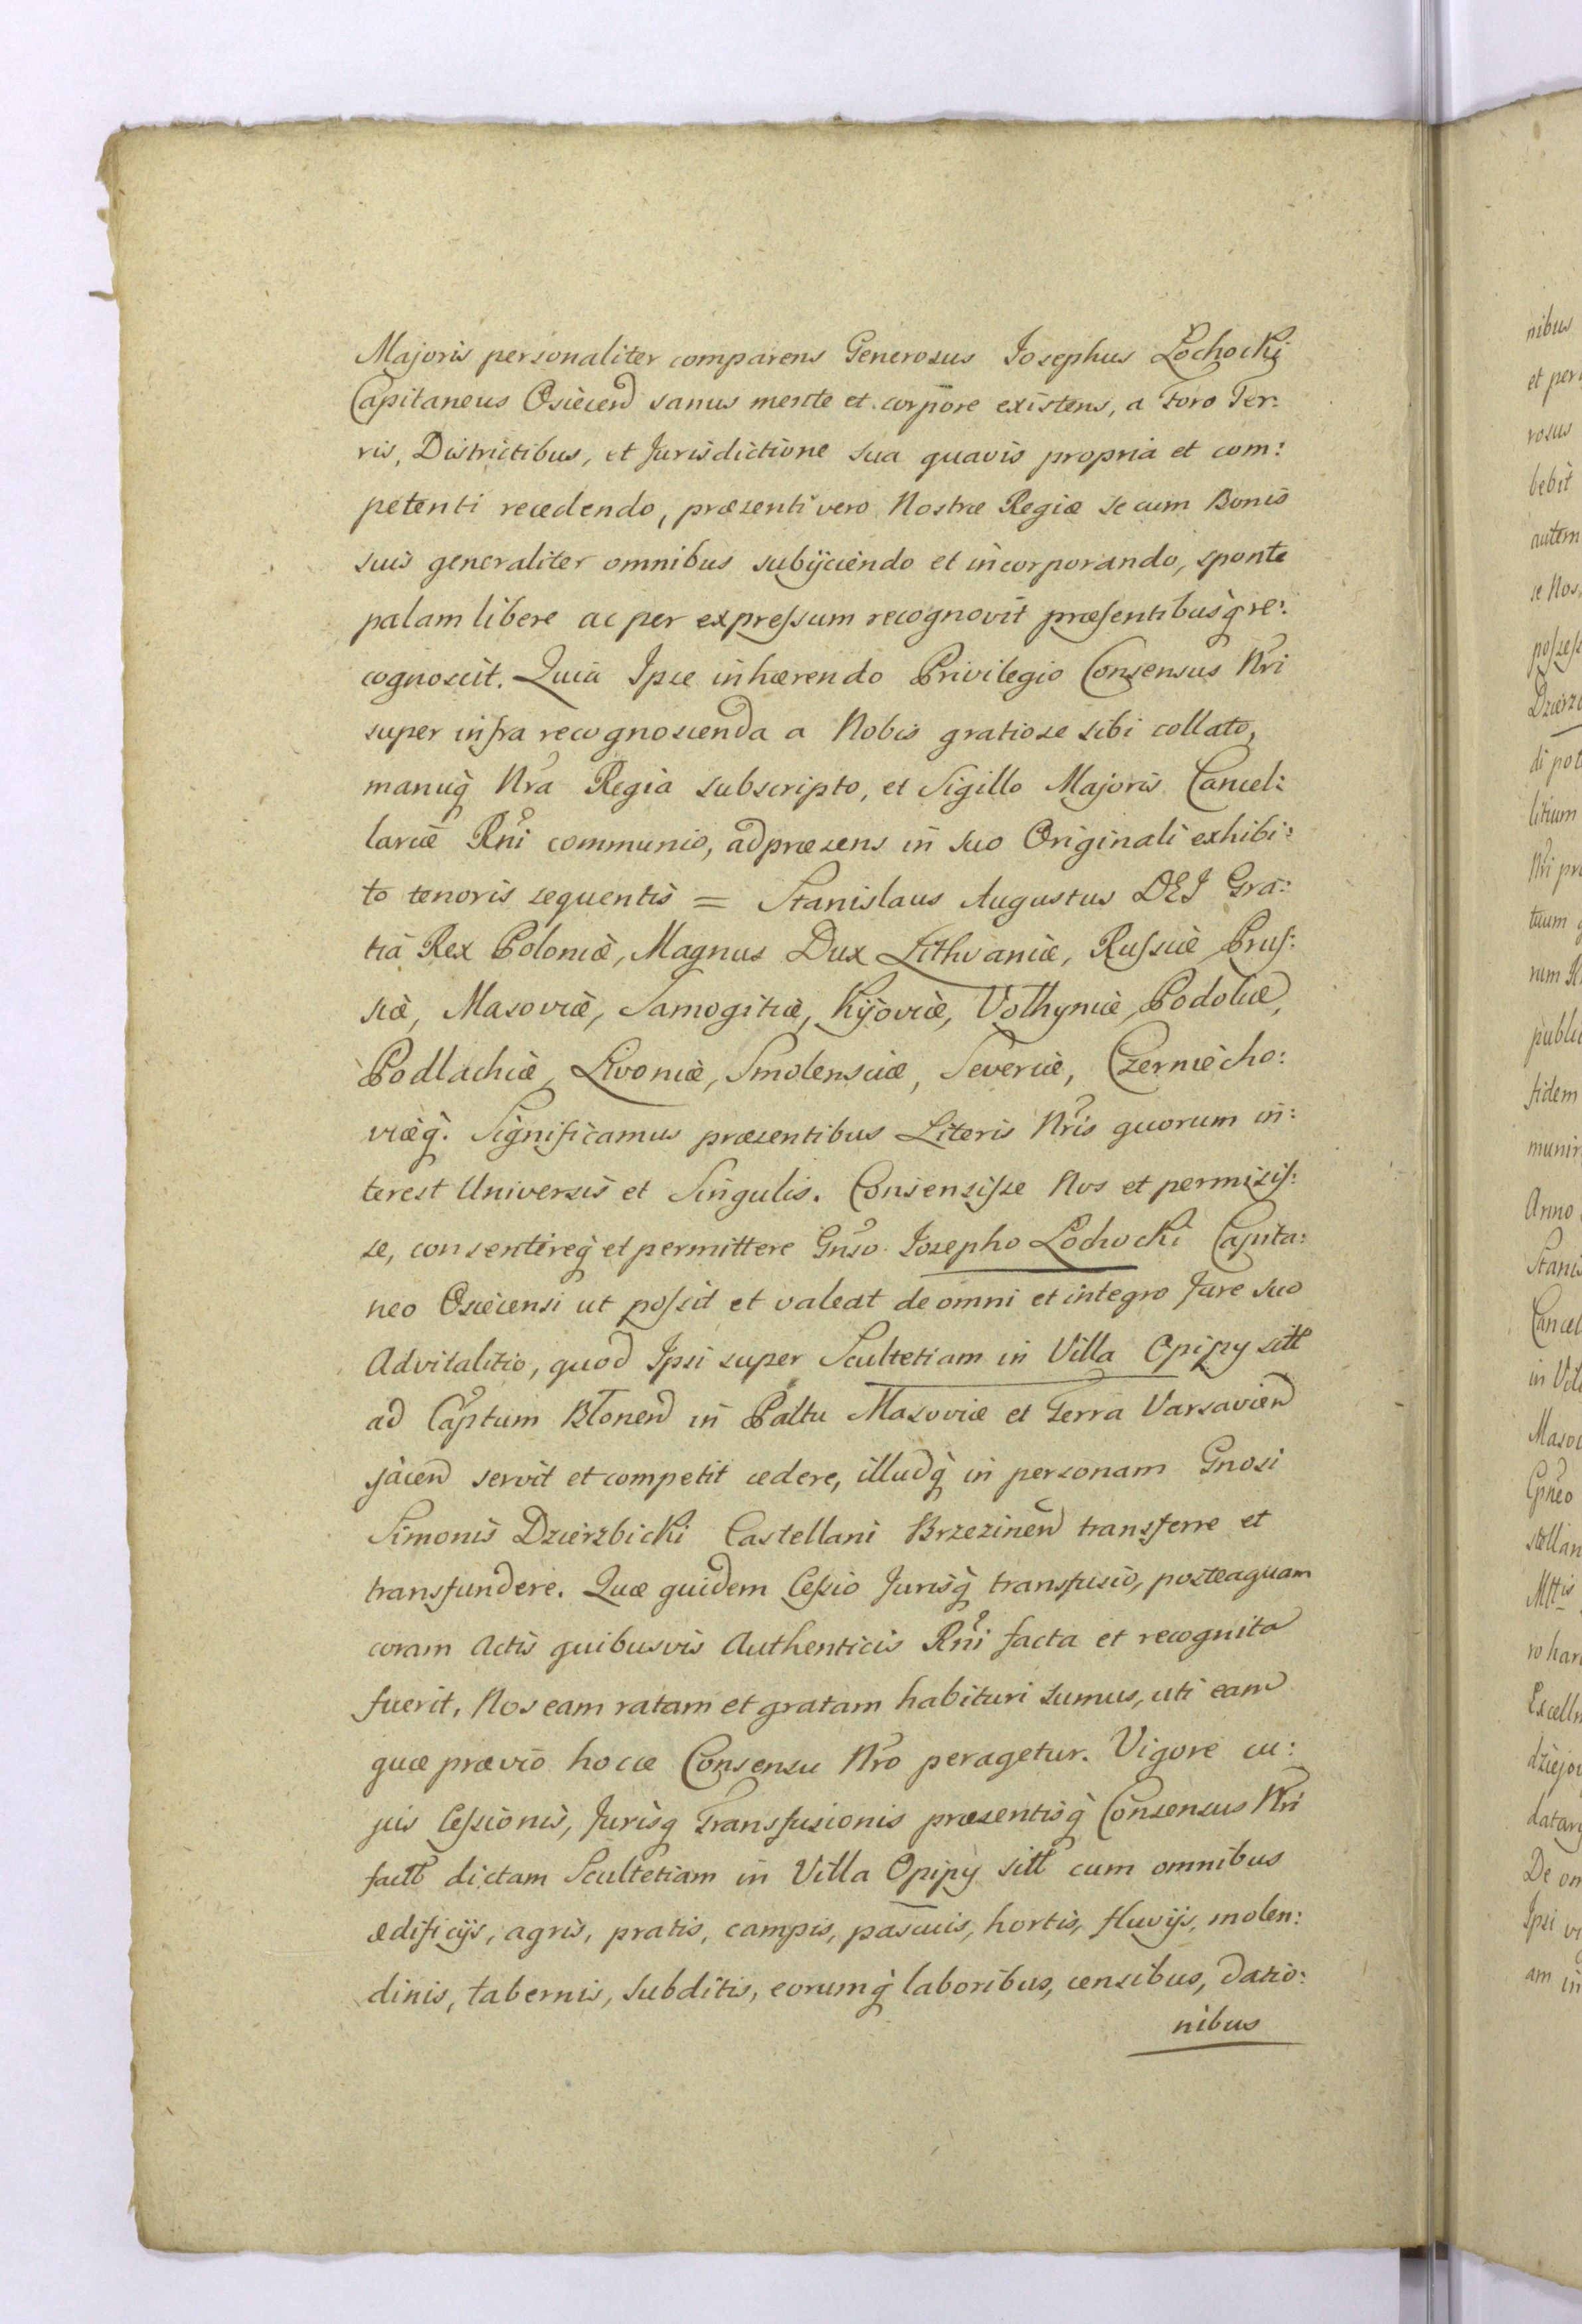 Majoris personaliter comparens Generosus Josephus Łochocki
Capitaneus Osiecen̄ sanus mente et corpore existens, a Foro Ter:
ris, Districtibus, et Jurisdictione sua quavis propria et com:
petenti recedendo, præsenti vero Nostræ Regiæ se cum Bonis
suis generaliter omnibus subijciendo et incorporando, sponte
palam libere ac per expreſsum recognovit præſentibusq̀ re:
cognoscit. Quia Ipse inhærendo Privilegio Consensus Nr̃i
super infra recognoscenda a Nobis gratiose sibi collato,
manuq̀ Nr̃a Regia subscripto, et Sigillo Majoris Cancel:
lariæ Rñi communio, ad præsens in suo Originali exhibi:
to tenoris sequentis = Stanislaus Augustus DEJ Gra:
tia Rex Poloniæ, Magnus Dux Lithvaniæ, Ruſsiæ Pruſ:
siæ, Masoviæ, Samogitiæ, Kijoviæ, Volhyniæ, Podoliæ,
Podlachiæ, Livoniæ, Smolensciæ, Severiæ, Czerniecho:
viæq̀. Significamus præsentibus Literis Nr̃is quorum in:
terest Universis et Singulis. Consensiſse Nos et permisiſ:
se, consentireq̀ et permittere Gñso Josepho Łochocki Capita:
neo Osiecensi ut poſsit et valeat de omni et integro Jure suo
Advitalitio, quod Ipsi super Scultetiam in Villa Opipy sitt
ad Capt̃um Błonen̄ in Paltu Masoviæ et Terra Varsavien̄
jacen̄ servit et competit cedere, illudq̀ in personam Gnosi
Simonis Dzierzbicki Castellani Brzezinen̄ transferre et
transfundere. Quæ quidem Ceſsio Jurisq̀ transfusio, posteaquam
coram Actis quibusvis Authenticis Rñi facta et recognita
fuerit, Nos eam ratam et gratam habituri sumus, uti eam
quæ prævio hocce Consensu Nr̃o peragetur. Vigore cu:
jus Ceſsionis, Jurisq Transfusionis præsentisq̀ Consensus Nr̃i
factt dictam Scultetiam in Villa Opipy sitt cum omnibus
ædificijs, agris, pratis, campis, pascuis, hortis, fluvijs, molen:
dinis, tabernis, subditis, eorumq̀ laboribus, censibus, datio:
nibus
nibus
et per
rosus
bebit
autem
se Nos
poſseſs
Dzierz
di pot
litium
Nr̃i pr
tuum
rum R
public
fidem
munir
Anno
Stanis
Cancel
in Vil
Masov
Gñeo
stellan
Mttis
ro har
Excelln
dziejo
datary
De om
Ipsi
am in